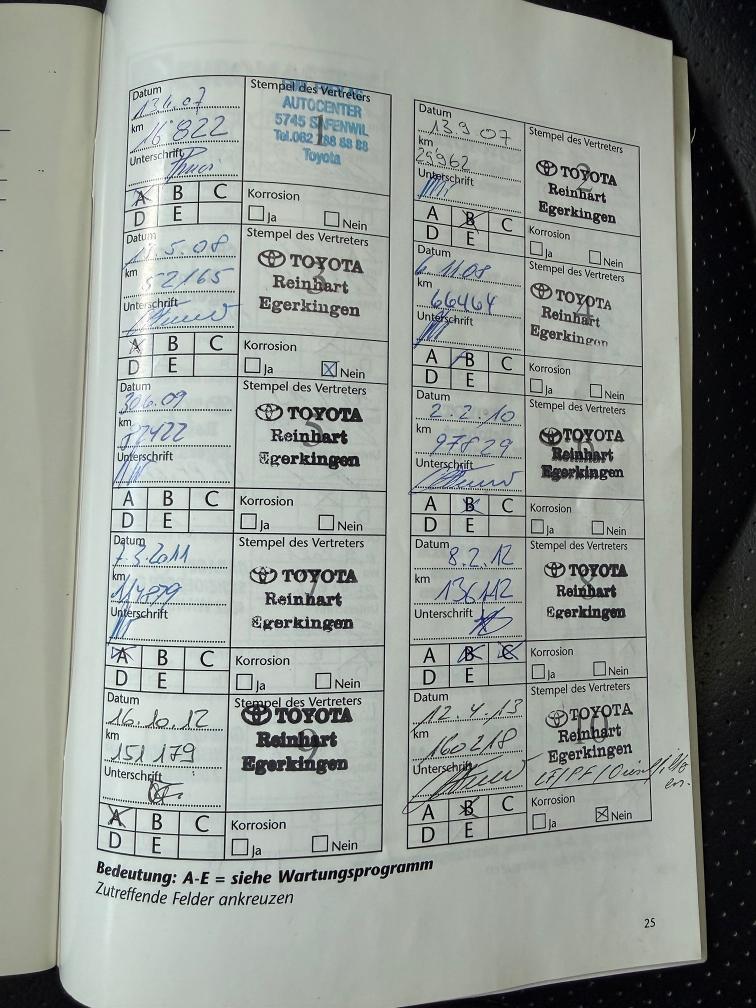 Datum
Stempel des Vertreters
13.6.07
AUTOCENTER
km
5745 SAFENWIL
16'822
1
Tel.062 788 88 88
Unterschrift
Toyota
A B C
Korrosion
D E
Ja Nein
Datum
Stempel des Vertreters
13.9.07
km
2
TOYOTA
29962
Reinhart
Unterschrift
Egerkingen
A B C
Korrosion
D E
Ja Nein
Datum
Stempel des Vertreters
.5.08
TOYOTA
km
3
52165
Reinhart
Unterschrift
Egerkingen
A B C
Korrosion
D E
Ja Nein
Datum
Stempel des Vertreters
6.11.08
TOYOTA
km
4
66464
Reinhart
Unterschrift
Egerkingen
A B C
Korrosion
D E
Ja Nein
Datum
Stempel des Vertreters
30.6.09
TOYOTA
km
5
82422
Reinhart
Unterschrift
Egerkingen
A B C
Korrosion
D E
Ja Nein
Datum
Stempel des Vertreters
2.2.10
TOYOTA
km
6
97829
Reinhart
Unterschrift
Egerkingen
A B C
Korrosion
D E
Ja Nein
Datum
Stempel des Vertreters
7.3.2011
TOYOTA
km
7
114879
Reinhart
Unterschrift
Egerkingen
A B C
Korrosion
D E
Ja Nein
Datum
Stempel des Vertreters
8.2.12
TOYOTA
km
8
136142
Reinhart
Unterschrift
Egerkingen
A B C
Korrosion
D E
Ja Nein
Datum
Stempel des Vertreters
16.10.12
TOYOTA
km
9
151179
Reinhart
Unterschrift
Egerkingen
A B C
Korrosion
D E
Ja Nein
Datum
Stempel des Vertreters
12.4.13
TOYOTA
km
10
160218
Reinhart
Unterschrift
Egerkingen
A B C
Korrosion
D E
Ja Nein
Bedeutung: A-E = siehe Wartungsprogramm
Zutreffende Felder ankreuzen
25